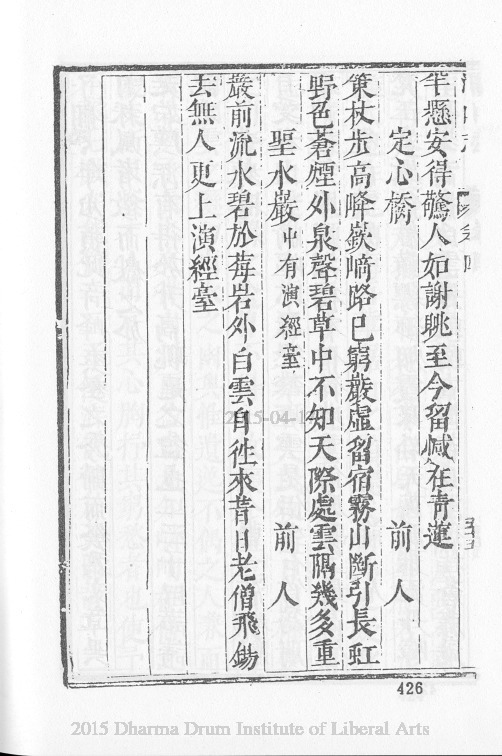 半懸安得驚人如謝朓至今留憾在青蓮
定心橋 前人
策杖步高峰嶔崎路已窮巖虛留宿霧山斷引長虹
野色蒼煙外泉聲碧草中不知天際處雲隔幾多重
聖水巖 中有演經臺 前人
巖前流水碧於莓岩外白雲自徃來昔日老僧飛錫
去無人更上演經臺
426
2015-04-1
2015 Dharma Drum Institute of Liberal Arts